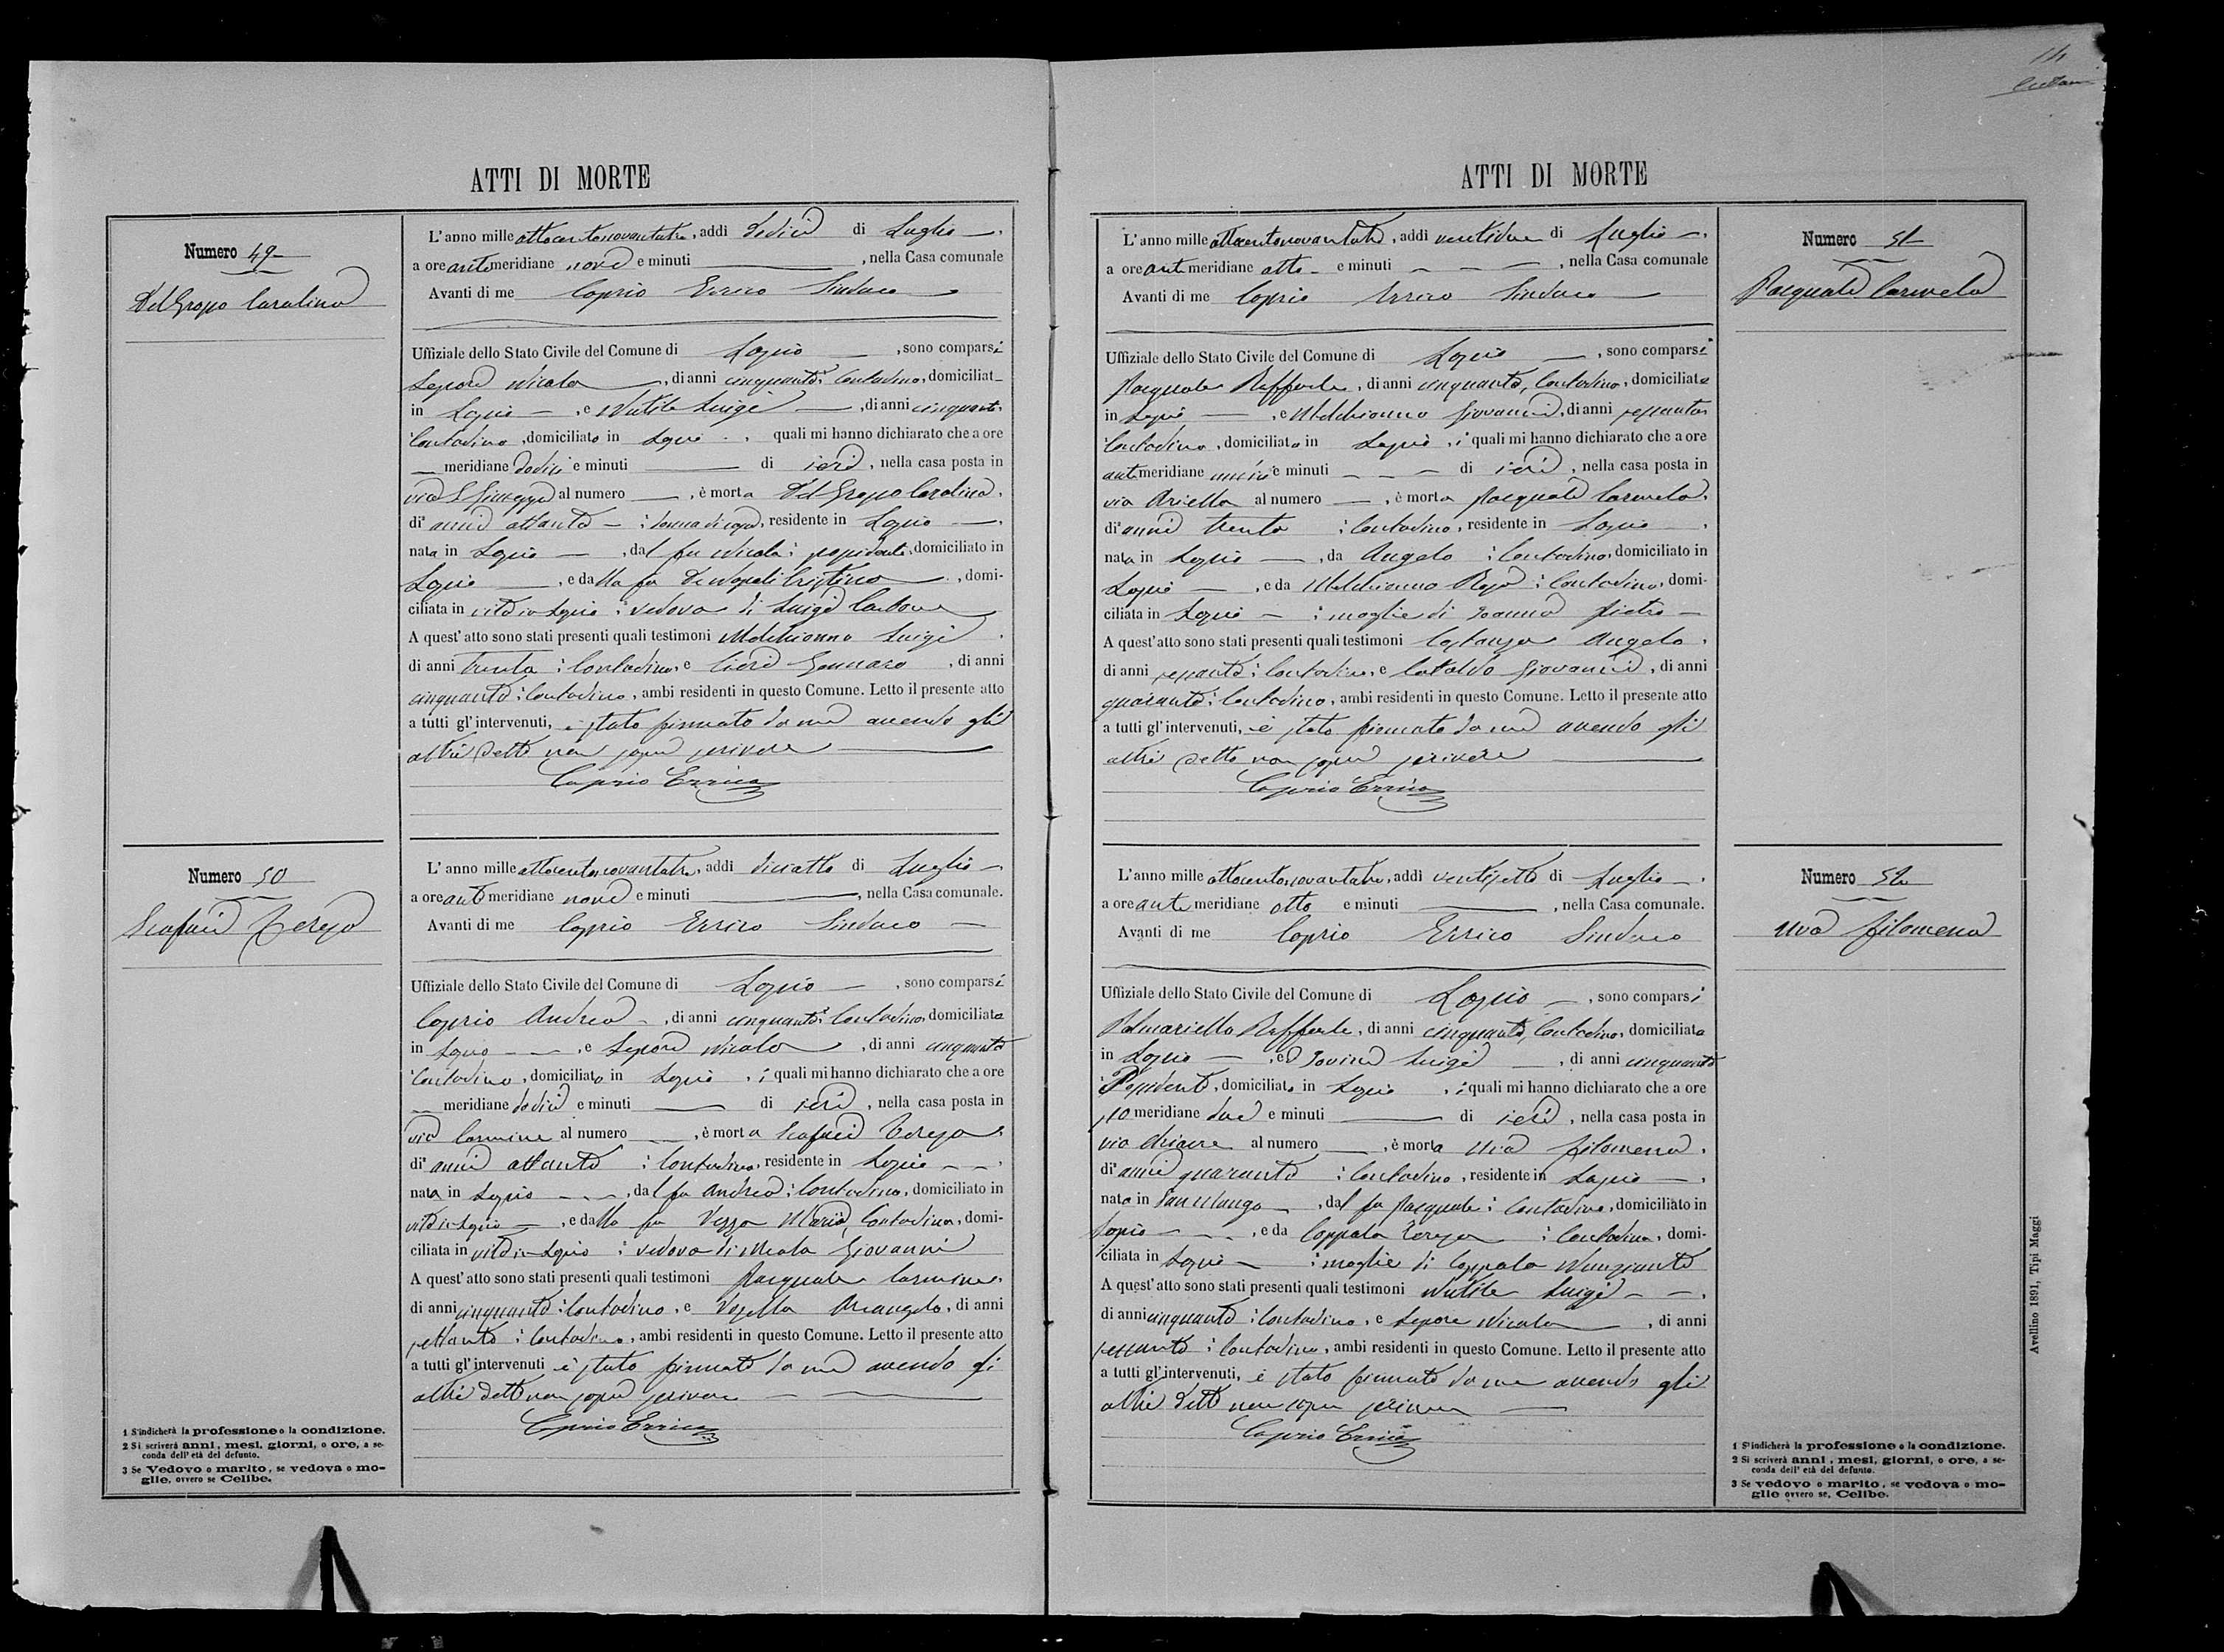 ATTI DI MORTE
Numero 49
Del Grosso Carolina
L'anno mille ottocentonovantatre, addì dodici di Luglio
a ore antimeridiane nove e minuti, nella Casa comunale
Avanti di me Caprio Errico Sindaco
Uffiziale dello Stato Civile del Comune di Lapio, sono comparsi
Lepore Nicola, di anni cinquanta, Contadino, domiciliat
in Lapio, e Nutile Luigi, di anni cinquanta
Contadino, domiciliato in Lapio, quali mi hanno dichiarato che a ore
meridiane dodici e minuti di ieri, nella casa posta in
via S. Giuseppe al numero, è morta Del Grosso Carolina,
di anni ottanta, donna di casa, residente in Lapio
nata in Lapio, dal fu Nicola, possidente, domiciliato in
Lapio, e dalla fu De Napoli Cristina, domi-
ciliata in vita in Lapio, vedova di Luigi Carbone
A quest'atto sono stati presenti quali testimoni Melchionna Luigi
di anni trenta, Contadino, e Cieri Gennaro, di anni
cinquanta, Contadino, ambi residenti in questo Comune. Letto il presente atto
a tutti gl'intervenuti, è stato firmato da me avendo gli
altri detto non saper scrivere
Caprio Errico
Numero 50
Scafuri Teresa
L'anno mille ottocentonovantatre, addì diciotto di Luglio
a ore antimeridiane nove e minuti, nella Casa comunale.
Avanti di me Caprio Errico Sindaco
Uffiziale dello Stato Civile del Comune di Lapio, sono comparsi
Caprio Andrea, di anni cinquanta, Contadino, domiciliato
in Lapio, e Lepore Nicola, di anni cinquanta
Contadino, domiciliato in Lapio, i quali mi hanno dichiarato che a ore
meridiane dodici e minuti di ieri, nella casa posta in
via Carmine al numero, è morta Scafuri Teresa,
di anni ottanta, Contadina, residente in Lapio
nata in Lapio, dal fu Andrea, Contadino, domiciliato in
vita in Lapio, e dalla fu Maria, Contadina, domi-
ciliata in vita in Lapio, vedova di Giovanni
A quest'atto sono stati presenti quali testimoni Pasquale Carmine,
di anni cinquanta, Contadino, e Arcangelo, di anni
settanta, Contadino, ambi residenti in questo Comune. Letto il presente atto
a tutti gl'intervenuti è stato firmato da me avendo gli
altri detto non saper scrivere
Caprio Errico
1 S'indicherà la professione o la condizione.
2 Si scriverà anni, mesi, giorni, o ore, a se-
conda dell'età del defunto.
3 Se Vedovo o marito, se vedova o mo-
glie, ovvero se Celibe.
14
ATTI DI MORTE
L'anno mille ottocentonovantatre, addì ventidue di Luglio
a ore antimeridiane otto e minuti, nella Casa comunale
Avanti di me Caprio Errico Sindaco
Uffiziale dello Stato Civile del Comune di Lapio, sono comparsi
Pasquale Raffaele, di anni cinquanta, Contadino, domiciliato
in Lapio, e Melchionna Giovanni, di anni sessanta
Contadino, domiciliato in Lapio, i quali mi hanno dichiarato che a ore
antimeridiane undici e minuti di ieri, nella casa posta in
via Ariella al numero, è morta Pasquale Carmela,
di anni trenta, Contadina, residente in Lapio
nata in Lapio, da Angelo, Contadino, domiciliato in
Lapio, e da Melchionna Rosa, Contadina, domi-
ciliata in Lapio, moglie di Ioanna Pietro
A quest'atto sono stati presenti quali testimoni Costanza Angelo,
di anni sessanta, Contadino, e Cataldo Giovanni, di anni
quaranta, Contadino, ambi residenti in questo Comune. Letto il presente atto
a tutti gl'intervenuti, è stato firmato da me avendo gli
altri detto non saper scrivere
Caprio Errico
Numero 51
Pasquale Carmela
L'anno mille ottocentonovantatre, addì ventisette di Luglio
a ore antimeridiane otto e minuti, nella Casa comunale.
Avanti di me Caprio Errico Sindaco
Uffiziale dello Stato Civile del Comune di Lapio, sono comparsi
Palmariello Raffaele, di anni cinquanta, Contadino, domiciliato
in Lapio, ed Iovine Luigi, di anni cinquanta
Possidente, domiciliato in Lapio, i quali mi hanno dichiarato che a ore
po meridiane due e minuti di ieri, nella casa posta in
via al numero, è morta Uva Filomena,
di anni quaranta, Contadina, residente in Lapio
nata in San Mango, dal fu Pasquale, Contadino, domiciliato in
Lapio, e da Coppola Teresa, Contadina, domi-
ciliata in Lapio, moglie di Coppola Nunziante
A quest'atto sono stati presenti quali testimoni Nutile Luigi
di anni cinquanta, Contadino, e Lepore Nicola, di anni
sessanta, Contadino, ambi residenti in questo Comune. Letto il presente atto
a tutti gl'intervenuti, è stato firmato da me avendo gli
altri detto non saper scrivere
Caprio Errico
Numero 52
Uva Filomena
1 S'indicherà la professione o la condizione.
2 Si scriverà anni, mesi, giorni, o ore, a se-
conda dell'età del defunto.
3 Se vedovo o marito, se vedova o mo-
glie ovvero se, Celibe.
Avellino 1891, Tipi Maggi